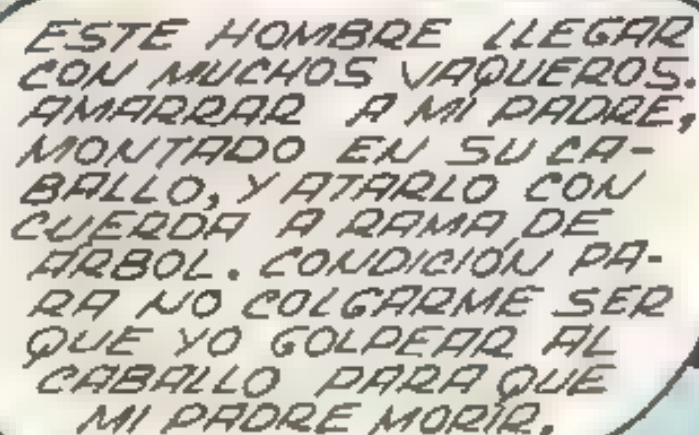 ESTE HOMBRE LLEGAR
CON MUCHOS VAQUEROS.
AMARRAR A MI PADRE,
MONTADO EN SU CA-
BALLO, Y ATARLO CON
CUERDA A RAMA DE
ÁRBOL. CONDICIÓN PA-
RA NO COLGARME SER
QUE YO GOLPEAR AL
CABALLO PARA QUE
MI PADRE MORIR.